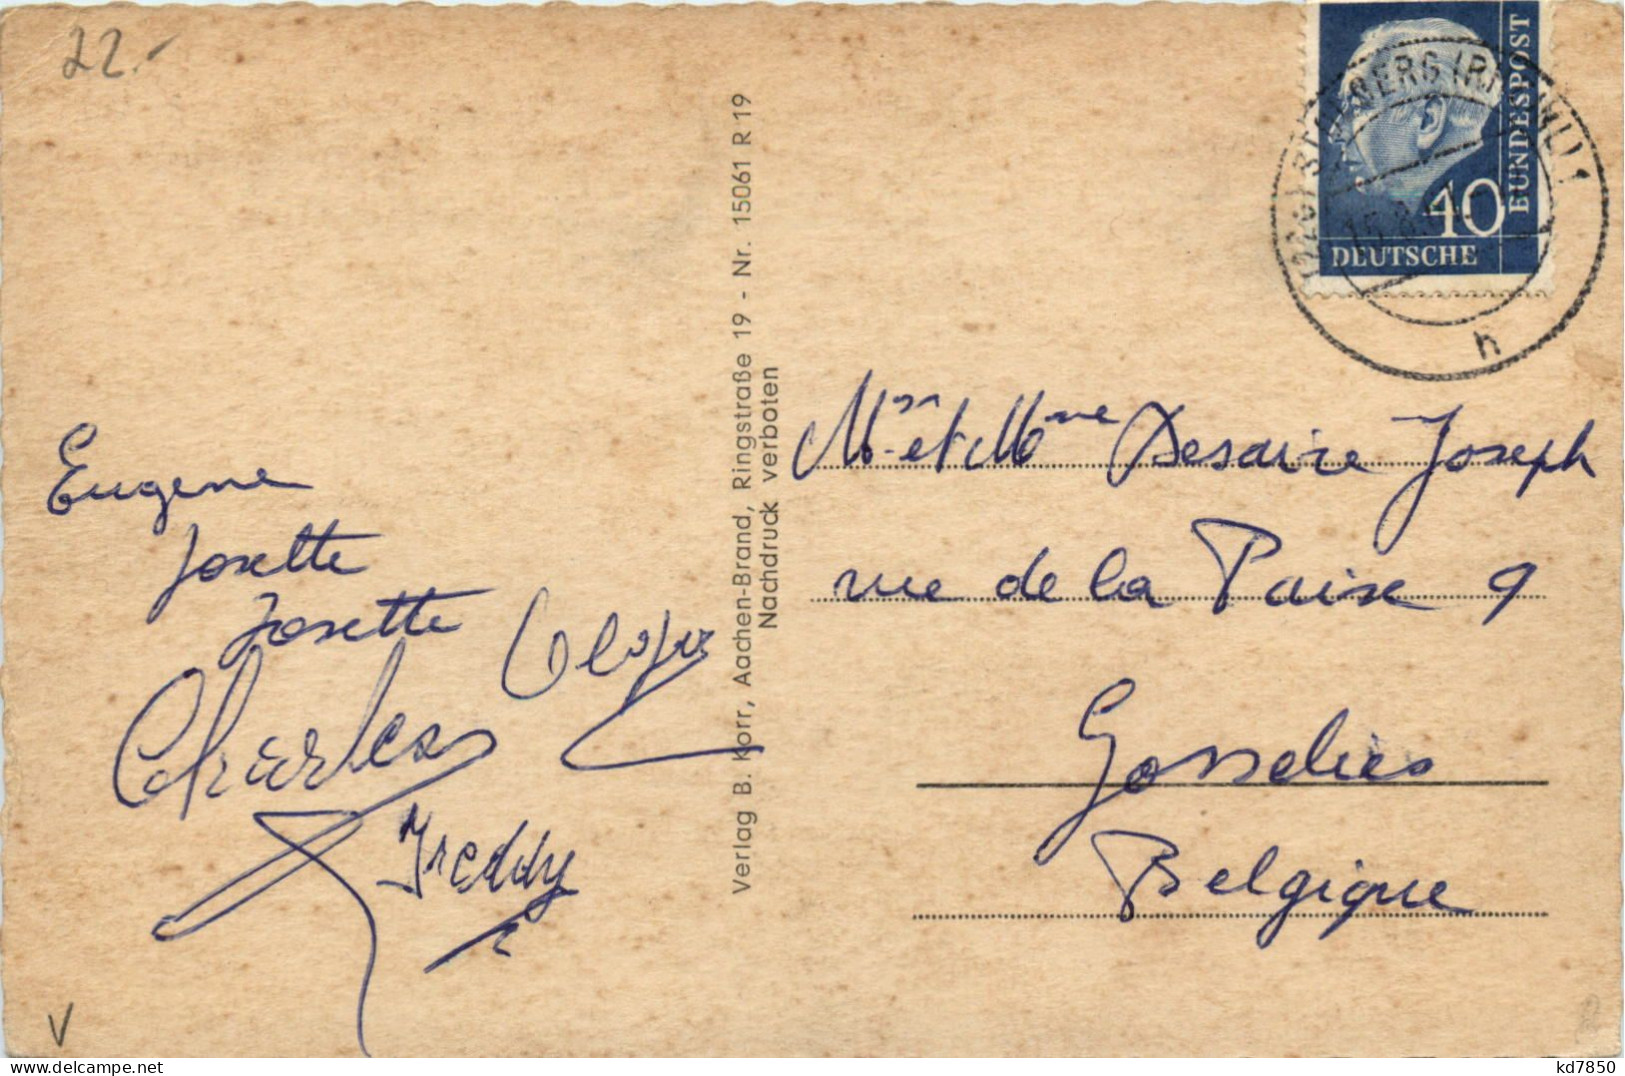 22.-
BUNDESPOST
40
DEUTSCHE
15.8.
h
Eugene
Josette
Josette
Charles
Freddy
Verlag B. Korr, Aachen-Brand, Ringstraße 19 - Nr. 15061 R 19
Nachdruck verboten
Mr et Mme Desaire Joseph
rue de la Paix 9
Gosselies
Belgique
V
kd7850